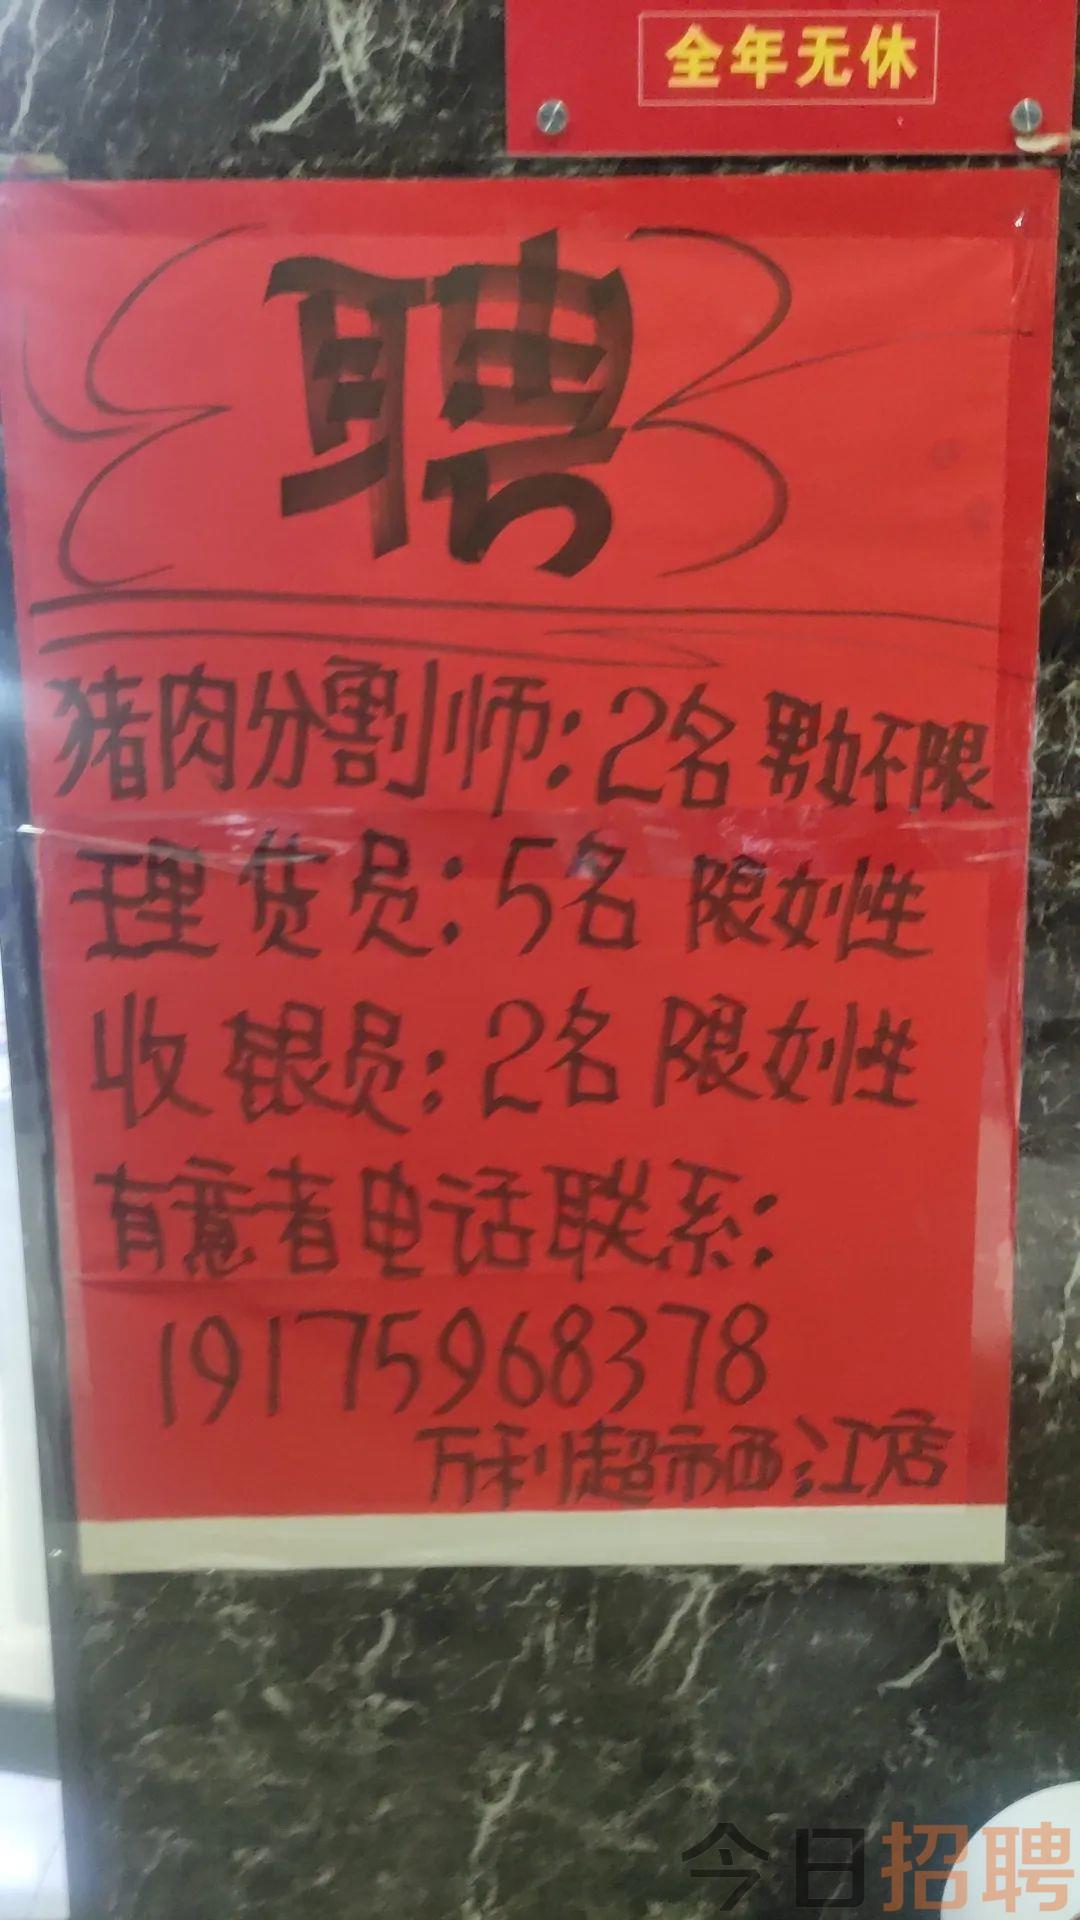 全年无休
聘
猪肉分割师：2名 男女不限
理货员：5名 限女性
收银员：2名 限女性
有意者电话联系：
19175968378
万利超市西江店
今日招聘